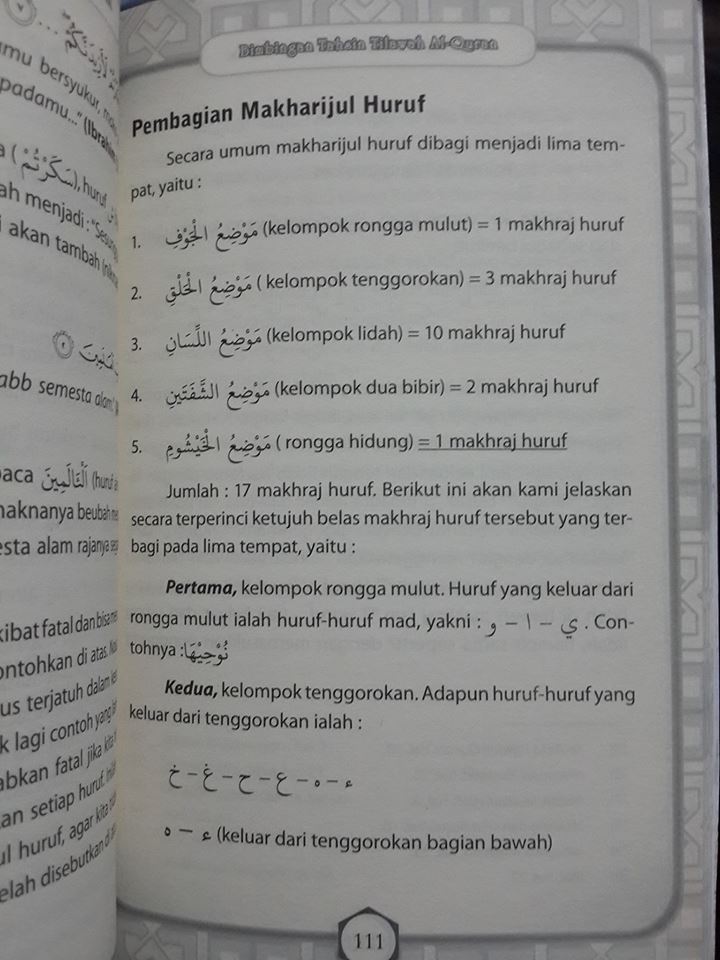 amu bersyukur,
padamu..." (Ibrahim
(سَكَرْتُمْ), huruf
ah menjadi : "Sesung
i akan tambah
abb semesta alam
baca اَلْتَالَمِيْنَ (huruf
maknanya beubah
esta alam rajanya
kibat fatal dan bisa
contohkan di atas.
us terjatuh dalam
k lagi contoh yang
abkan fatal jika kita
an setiap huruf.
ul huruf, agar kita
elah disebutkan di
Bimbingan Tahsin Tilawah Al-Quran
Pembagian Makharijul Huruf
Secara umum makharijul huruf dibagi menjadi lima tem-
pat, yaitu :
1. مَوْضِعُ الْجَوْفِ (kelompok rongga mulut) = 1 makhraj huruf
2. مَوْضِعُ الْحَلْقِ ( kelompok tenggorokan) = 3 makhraj huruf
3. مَوْضِعُ اللِّسَانِ (kelompok lidah) = 10 makhraj huruf
4. مَوْضِعُ الشَّفَتَيْنِ (kelompok dua bibir) = 2 makhraj huruf
5. مَوْضِعُ الْخَيْشُومِ ( rongga hidung) = 1 makhraj huruf
Jumlah : 17 makhraj huruf. Berikut ini akan kami jelaskan
secara terperinci ketujuh belas makhraj huruf tersebut yang ter-
bagi pada lima tempat, yaitu :
Pertama, kelompok rongga mulut. Huruf yang keluar dari
rongga mulut ialah huruf-huruf mad, yakni : ي – ا – و . Con-
tohnya :نُوْحِيْهَا
Kedua, kelompok tenggorokan. Adapun huruf-huruf yang
keluar dari tenggorokan ialah :
ء – ه – ع – ح – غ – خ
ء – ه (keluar dari tenggorokan bagian bawah)
111